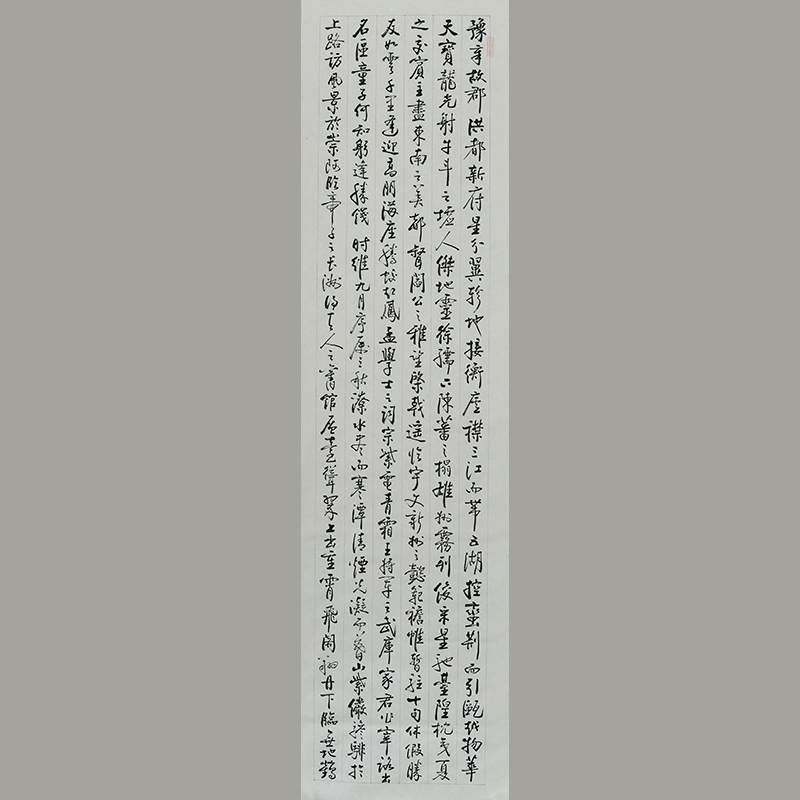 豫章故郡洪都新府星分翼軫地接衡廬襟三江而帶五湖控蠻荊而引甌越物華
天寶龍光射牛斗之墟人傑地靈徐孺下陳蕃之榻雄州霧列俊采星馳臺隍枕夷夏
之交賓主盡東南之美都督閻公之雅望棨戟遙臨宇文新州之懿範襜帷暫駐十旬休假勝
友如雲千里逢迎高朋滿座騰蛟起鳳孟學士之詞宗紫電青霜王將軍之武庫家君作宰路出
名區童子何知躬逢勝餞時維九月序屬三秋潦水盡而寒潭清煙光凝而暮山紫儼驂騑於
上路訪風景於崇阿臨帝子之長洲得天人之舊館層臺聳翠上出重霄飛閣翔丹下臨無地鶴